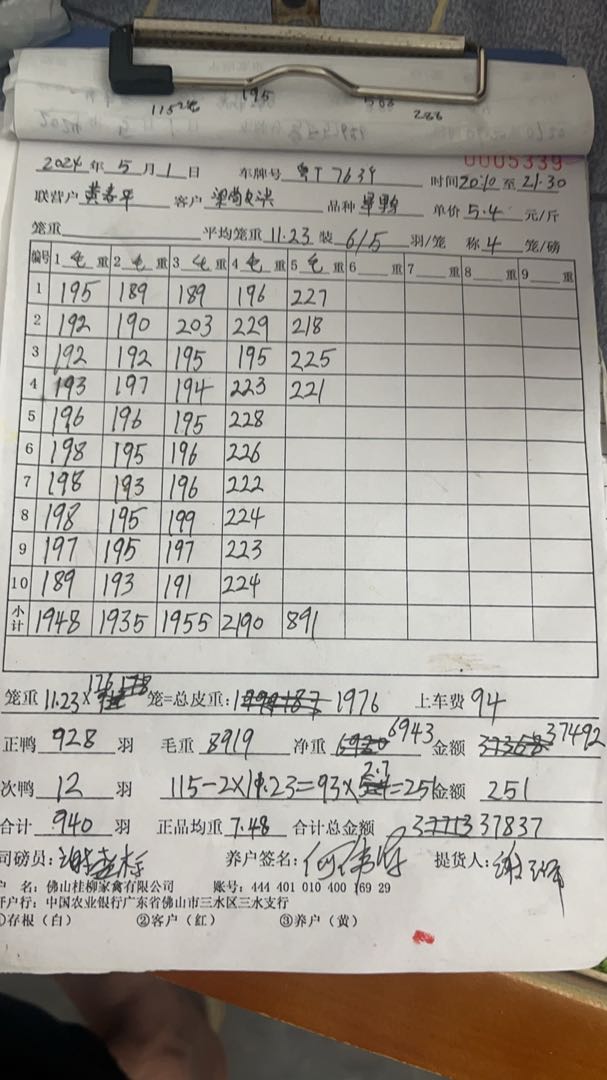 115 195 583 288
0005339
2024年5月1日 车牌号 粤T 7639 时间20:10至21:30
联营户 黄春平 客户 品种 单价5.4元/斤
笼重 平均笼重11.23 装6/5羽/笼 称4笼/磅
编号 1重 2重 3重 4重 5重 6重 7重 8重 9重
1 195 189 189 196 227
2 192 190 203 229 218
3 192 192 195 195 225
4 193 197 194 223 221
5 196 196 195 228
6 198 195 196 226
7 198 193 196 222
8 198 195 199 224
9 197 195 197 223
10 189 193 191 224
小计 1948 1935 1955 2190 891
笼重11.23×176 笼=总皮重:1976 上车费94
正鸭928羽 毛重8919 净重6943 金额37492
次鸭12羽 115-2×11.23=93×2.7=251金额251
合计940羽 正品均重7.48 合计总金额37837
司磅员: 养户签名: 提货人:
户 名:佛山桂柳家禽有限公司 账号:444 401 010 400 169 29
开户行:中国农业银行广东省佛山市三水区三水支行
①存根(白) ②客户(红) ③养户(黄)